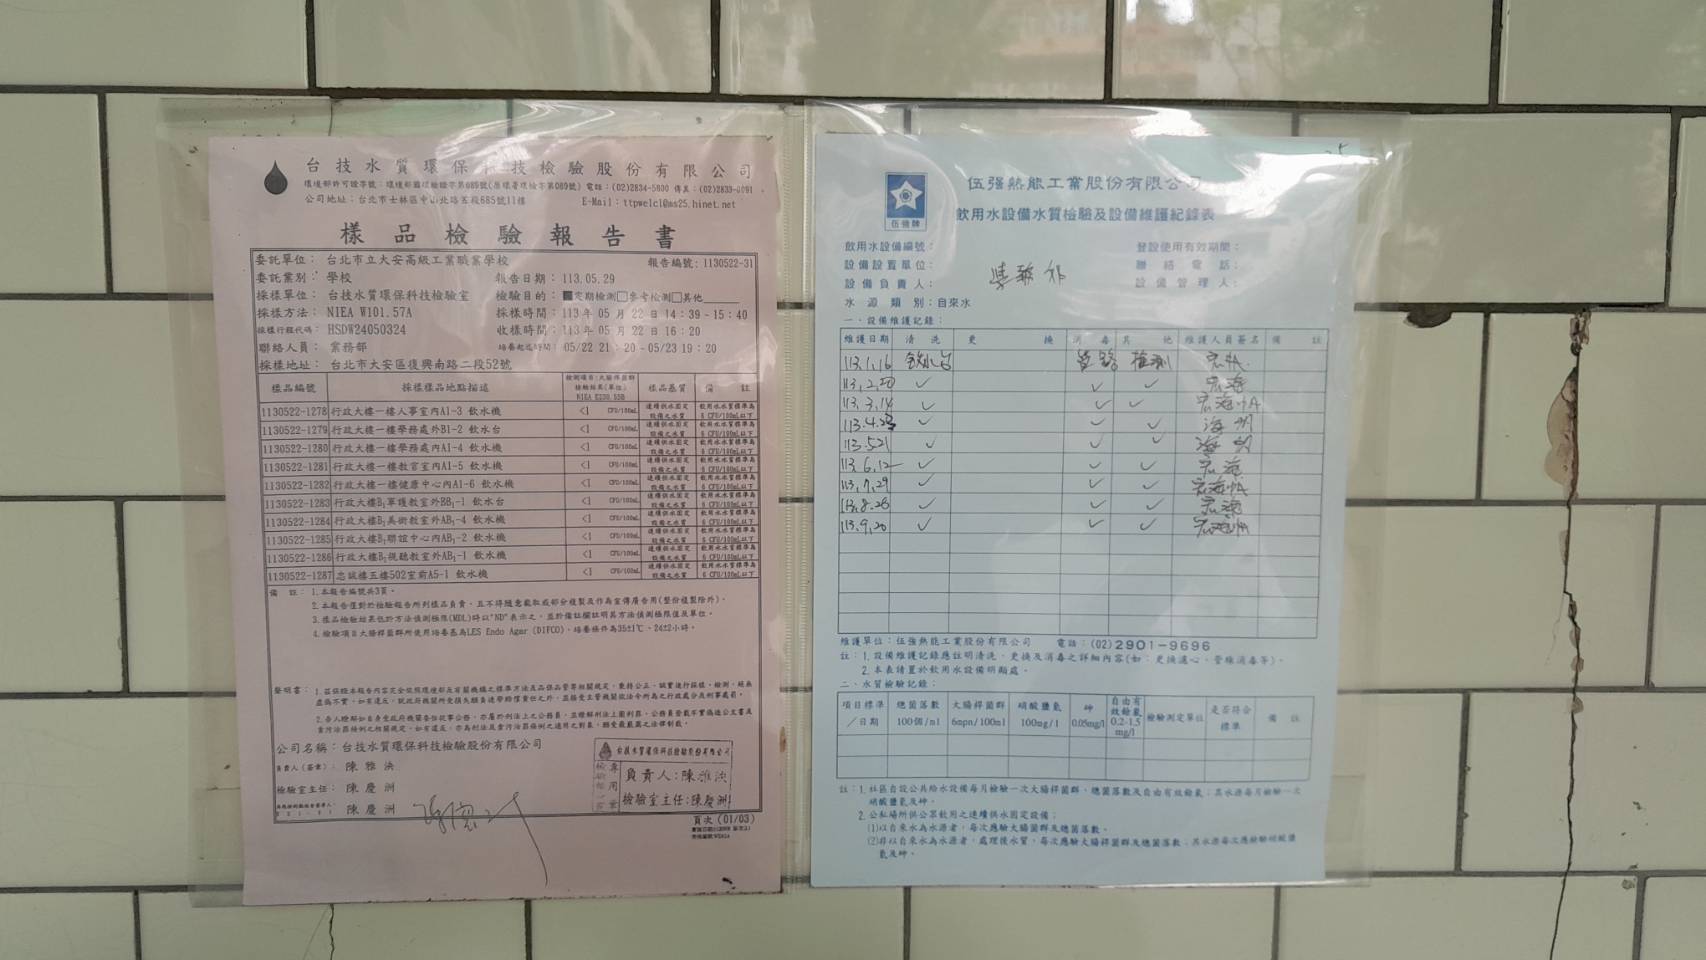 台技水質環保科技檢驗股份有限公司
環境部許可證字號：環境部國環檢證字第089號(原環署環檢字第089號) 電話：(02)2834-5800 傳真：(02)2833-0091
公司地址：台北市士林區中山北路五段685號11樓 E-Mail：ttpwelcl@ms25.hinet.net
樣品檢驗報告書
委託單位： 台北市立大安高級工業職業學校 報告編號：1130522-31
委託業別： 學校 報告日期：113.05.29
採樣單位： 台技水質環保科技檢驗室 檢驗目的：■定期檢測□參考檢測□其他
採樣方法： NIEA W101.57A 採樣時間：113 年 05 月 22 日 14：39~15：40
採樣行程代碼： HSDW24050324 收樣時間：113 年 05 月 22 日 16：20
聯絡人員： 業務部 培養起迄時間： 05/22 21：20 ~05/23 19：20
採樣地址： 台北市大安區復興南路二段52號
樣品編號 採樣樣品地點描述 檢測項目:大腸桿菌群 檢驗結果(單位) NIEA E230.55B 樣品基質 備註
1130522-1278 行政大樓一樓人事室內A1-3 飲水機 <1 CFU/100mL 連續供水固定設備之水質 飲用水水質標準為6 CFU/100mL以下
1130522-1279 行政大樓一樓學務處外B1-2 飲水台 <1 CFU/100mL 連續供水固定設備之水質 飲用水水質標準為6 CFU/100mL以下
1130522-1280 行政大樓一樓學務處內A1-4 飲水機 <1 CFU/100mL 連續供水固定設備之水質 飲用水水質標準為6 CFU/100mL以下
1130522-1281 行政大樓一樓教官室內A1-5 飲水機 <1 CFU/100mL 連續供水固定設備之水質 飲用水水質標準為6 CFU/100mL以下
1130522-1282 行政大樓一樓健康中心內A1-6 飲水機 <1 CFU/100mL 連續供水固定設備之水質 飲用水水質標準為6 CFU/100mL以下
1130522-1283 行政大樓B1軍護教室外BB1-1 飲水台 <1 CFU/100mL 連續供水固定設備之水質 飲用水水質標準為6 CFU/100mL以下
1130522-1284 行政大樓B1美術教室外AB1-4 飲水機 <1 CFU/100mL 連續供水固定設備之水質 飲用水水質標準為6 CFU/100mL以下
1130522-1285 行政大樓B1聯誼中心內AB1-2 飲水機 <1 CFU/100mL 連續供水固定設備之水質 飲用水水質標準為6 CFU/100mL以下
1130522-1286 行政大樓B1視聽教室外AB1-1 飲水機 <1 CFU/100mL 連續供水固定設備之水質 飲用水水質標準為6 CFU/100mL以下
1130522-1287 忠誠樓五樓502室前A5-1 飲水機 <1 CFU/100mL 連續供水固定設備之水質 飲用水水質標準為6 CFU/100mL以下
備註：1.本報告編號共3頁。
2.本報告僅對於檢驗報告所列樣品負責，且不得隨意截取或部分複製及作為宣傳廣告用(整份複製除外)。
3.樣品檢驗結果低於方法偵測極限(MDL)時以"ND"表示之，並於備註欄註明其方法偵測極限值及單位。
4.檢驗項目大腸桿菌群所使用培養基為LES Endo Agar (DIFCO)，培養條件為35±1℃、24±2小時。
聲明書：
公司名稱：台技水質環保科技檢驗股份有限公司
負責人(簽章)： 陳雅泱
檢驗室主任： 陳慶洲
陳慶洲
台技水質環保科技檢驗股份有限公司
負責人:陳雅泱
檢驗室主任:陳慶洲
專用章
頁次(01/03)
伍強牌
伍強熱能工業股份有限公司
飲用水設備水質檢驗及設備維護紀錄表
飲用水設備編號： 登設使用有效期間：
設備設置單位： 聯絡電話：
設備負責人： 設備管理人：
水源類別：自來水
一、設備維護記錄：
維護日期 清洗 更換 消毒 其他 維護人員簽名 備註
113.1.16 飲水台 管路 檢測
113.2.20 ✓ ✓ ✓
113.3.14 ✓ ✓ ✓
113.4.23 ✓ ✓ ✓
113.5.21 ✓ ✓ ✓
113.6.12 ✓ ✓ ✓
113.7.29 ✓ ✓ ✓
113.8.26 ✓ ✓ ✓
113.9.20 ✓ ✓ ✓
維護單位：伍強熱能工業股份有限公司 電話：(02)2901-9696
註：1.設備維護記錄應註明清洗、更換及消毒之詳細內容(如：更換濾心、管線消毒等)。
2.本表請置於飲用水設備明顯處。
二、水質檢驗記錄：
項目標準／日期 總菌落數100個/ml 大腸桿菌群6mpn/100ml 硝酸鹽氮100mg/l 砷0.05mg/l 自由有效餘氯0.2-1.5mg/l 檢驗測定單位 是否符合標準 備註
註：1.社區自設公共給水設備每月檢驗一次大腸桿菌群、總菌落數及自由有效餘氯；其水源每月檢驗一次
硝酸鹽氮及砷。
2.公私場所供公眾飲用之連續供水固定設備：
(1)以自來水為水源者，每次應驗大腸桿菌群及總菌落數。
(2)非以自來水為水源者，處理後水質，每次應驗大腸桿菌群及總菌落數；其水源每次應檢驗硝酸鹽
氮及砷。